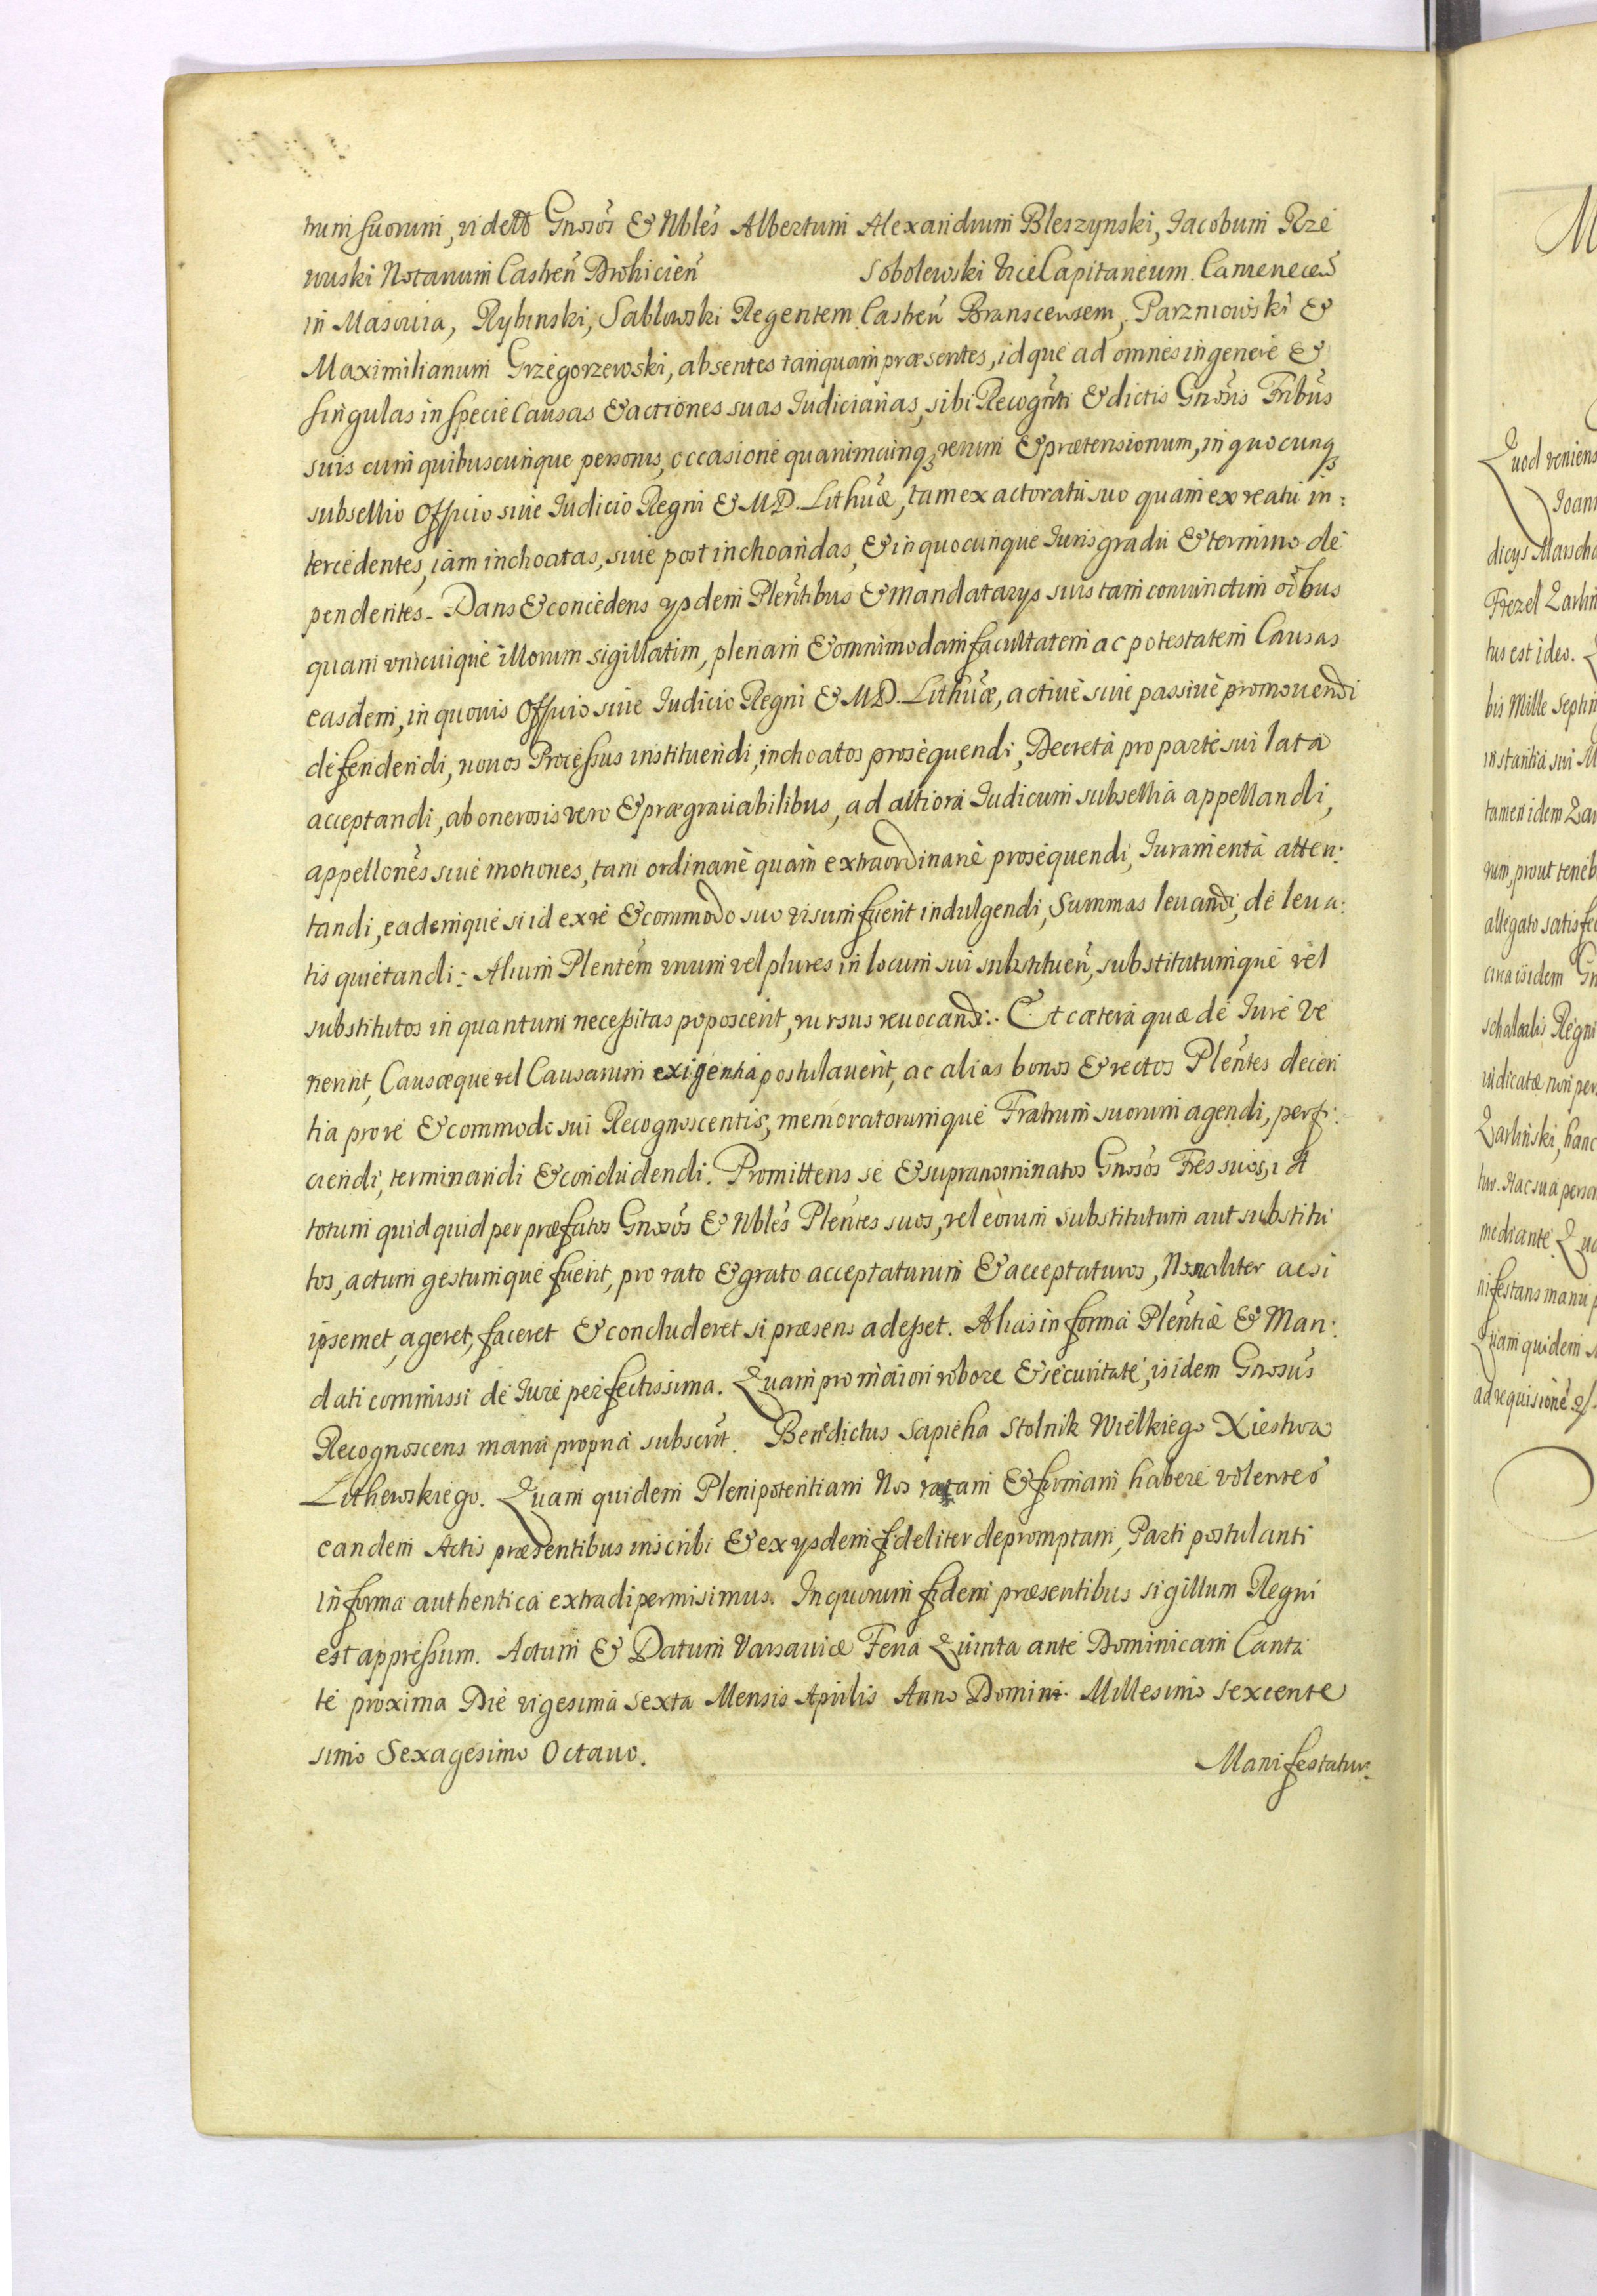 trum suorum, videlt Gnosos & Nbles Albertum Alexandrum Bleszynski, Jacobum Rze
wuski Notarium Castren Drohicien Sobolewski ViceCapitaneum Camenecen
in Masovia, Rybinski, Sablowski Regentem Castren Branscensem, Parzniowski &
Maximilianum Grzegorzewski, absentes tanquam præsentes, idque ad omnes in genere &
singulas in specie Causas & actiones suas Judiciarias, sibi Recognti & dictis Gnosis Fribus
suis cum quibuscunque personis, occasione quarumcunqz rerum & prætensionum, in quocunqz
subsellio Officio sive Judicio Regni & M.D. Lithuæ, tam ex actoratu suo quam ex reatu in:
tercedentes, iam inchoatas, sive post inchoandas, & in quocunque Juris gradu & termino de
pendentes. Dans & concedens ysdem Plentibus & Mandatarys suis tam coniunctim oibus
quam unicuique illorum sigillatim, plenam & omnimodam facultatem ac potestatem Causas
easdem, in quovis Officio sive Judicio Regni & M.D. Lithuæ, active sive passive promovendi
defendendi, novos Processus instituendi, inchoatos prosequendi, Decreta pro parte sui lata
acceptandi, ab onerosis vero & prægravabilibus, ad altiora Judicum subsellia appellandi,
appellones sive motiones, tam ordinarie quam extraordinarie prosequendi, Juramenta atten:
tandi, eademque si id ex re & commodo suo visum fuerit indulgendi, Summas levandi, de leva:
tis quietandi: Alium Plentem unum vel plures in locum sui substituen, substitutumque vel
substitutos in quantum necessitas poposcerit, rursus revocandi. Et cætera quæ de Jure ve
nerint, Causæque vel Causarum exigentia postulaverit, ac alias bonos & rectos Plentes decen
tia pro re & commodo sui Recognoscentis, memoratorumque Fratrum suorum agendi, perfi:
ciendi, terminandi & concludendi. Promittens se & supranominatos Gnosos Fres suos, id
totum quidquid per præfatos Gnosos & Nbles Plentes suos, vel eorum substitutum aut substitu
tos, actum gestumque fuerit, pro rato & grato acceptaturum & accepturos, Non aliter acsi
ipsemet, ageret, faceret & concluderet si præsens adesset. Alias in forma Plentiæ & Man:
dati commissi de Jure perfectissima. Quam pro maiori robore & securitate, isidem Gnosus
Recognoscens manu propria subscrit. Benedictus Sapieha Stolnik Wielkiego Xiestwa
Lithewskiego. Quam quidem Plenipotentiam Nos ratam & firmam habere volentes
eandem Actis præsentibus inscribi & ex ysdem fideliter depromptam, Parti postulanti
in forma authentica extradi permisimus. In quorum fidem præsentibus sigillum Regni
est appressum. Actum & Datum Varsaviæ Feria Quinta ante Dominicam Canta
te proxima Die vigesima sexta Mensis Aprilis Anno Domini Millesimo sexcente
simo Sexagesimo Octavo.
Manifestatur:
M
Quod veniens
Joann
dicys Marscha
Frezel Zarlin
tus est ideo.
bis Mille Septin
instantia sui M
tamen idem Zar
rum, prout teneb
allegato satisfec
cura isidem Gn
schalcalis Regni
iudicatæ non per
Zarlinski, hanc
tur. Hac sua person
mediante. Quo
nifestans manu p
Quam quidem
ad requisione